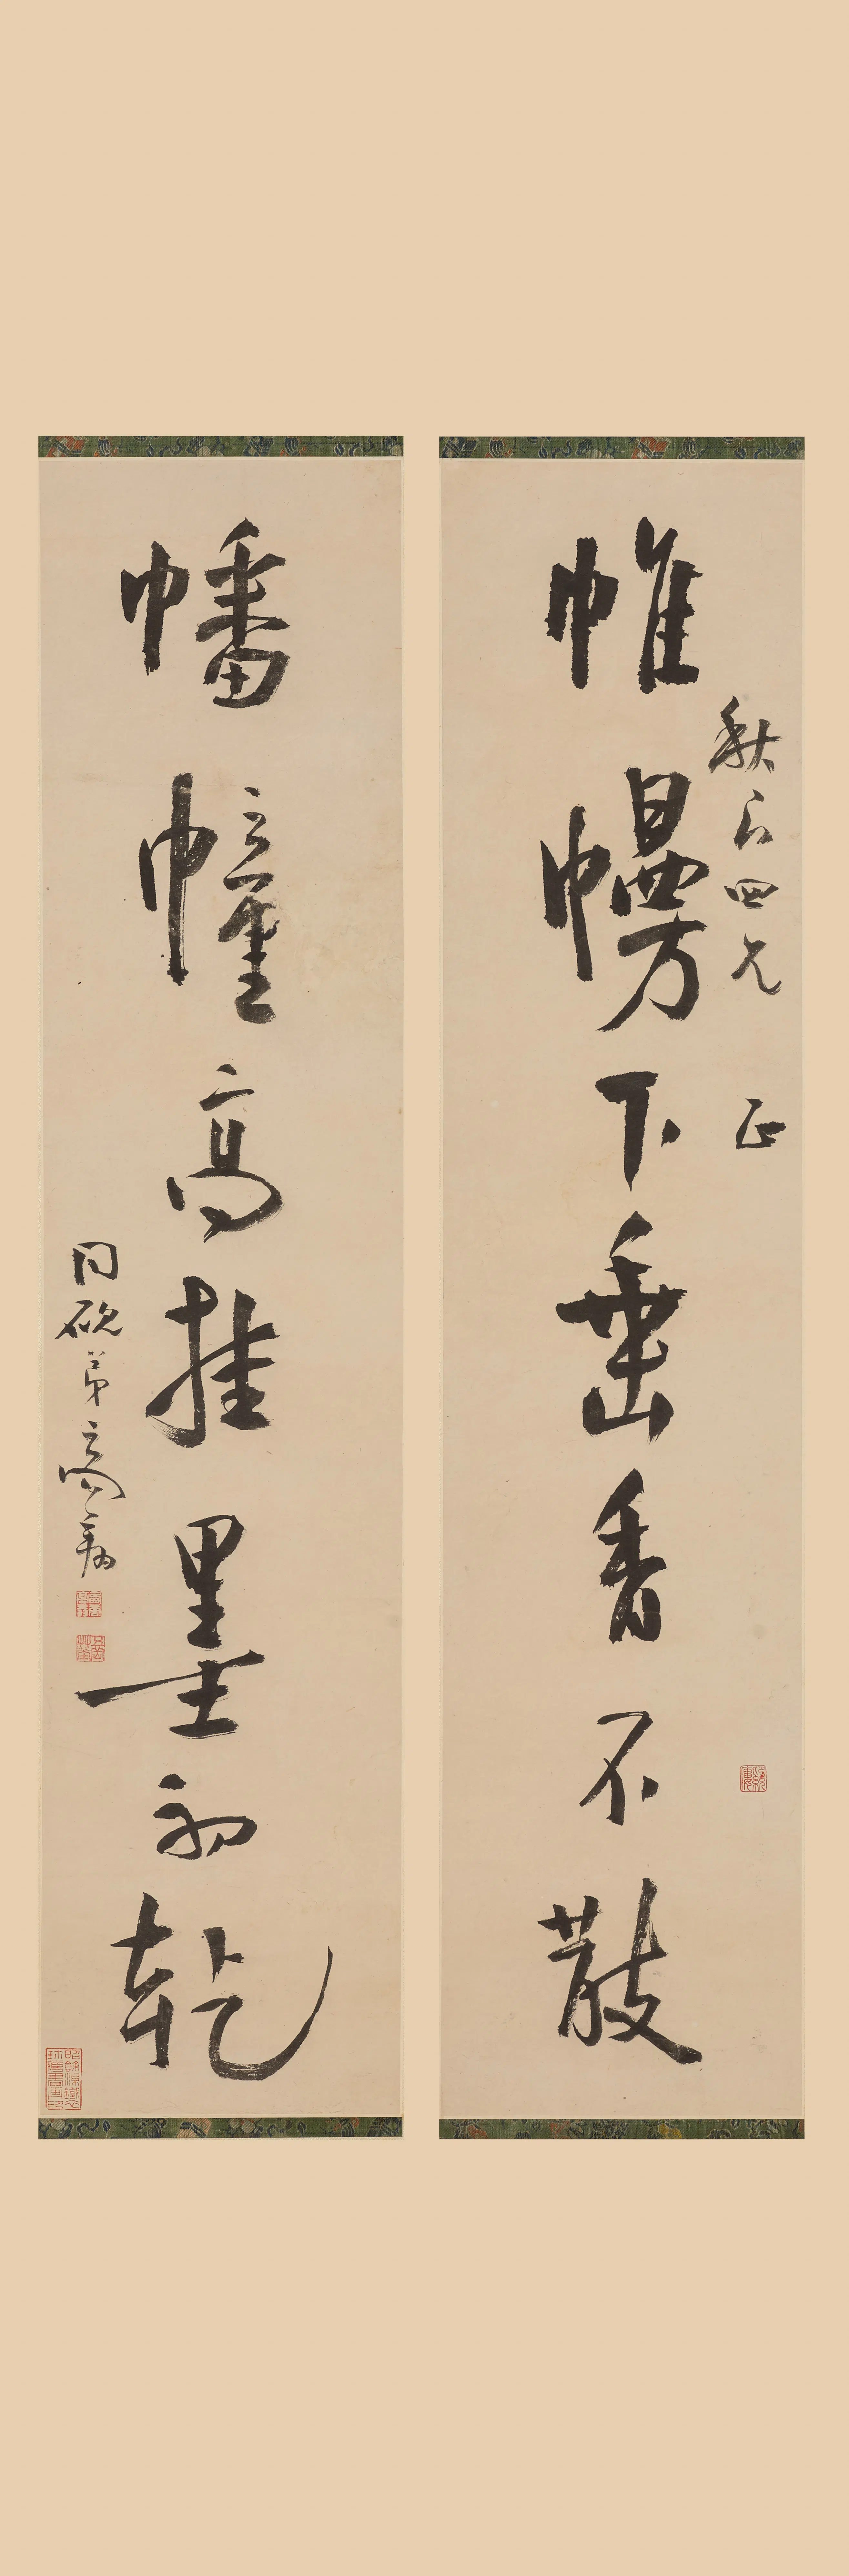 帷幔下垂香不散
秋四兄 正
幡幢高挂墨初乾
同硯弟